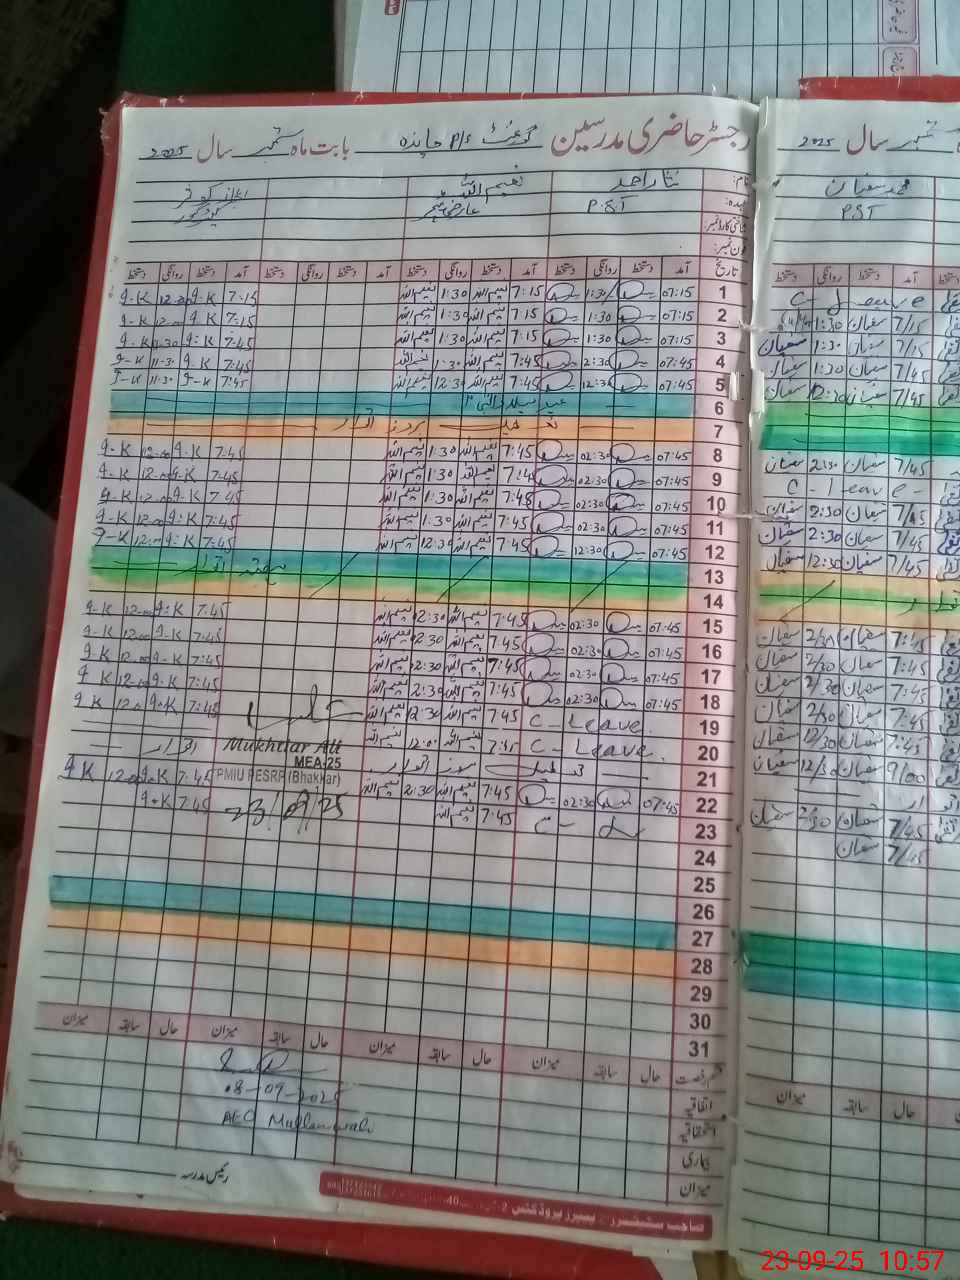 رجسٹر حاضری مدرسین گورنمنٹ P/S چاندہ بابت ماہ ستمبر سال 2025
ستمبر سال 2025
نام: نثار احمد نعیم اللہ
محمد سفیان
عہدہ: P.S.T عارضی ٹیچر
PST
فون نمبر:
تاریخ آمد دستخط روانگی دستخط آمد دستخط روانگی دستخط آمد دستخط روانگی دستخط آمد دستخط روانگی دستخط
آمد روانگی دستخط
1 07:15 1:30 7:15 نعیم اللہ 1:30 نعیم اللہ 7:15 q-K 12:00 q-K
C-Leave
2 07:15 1:30 7:15 نعیم اللہ 1:30 نعیم اللہ 7:15 q-K 12:00 q-K
7/15 سفیان 1:30
3 07:15 1:30 7:15 نعیم اللہ 1:30 نعیم اللہ 7:45 q-K 11:30 q-K
7/15 سفیان 1:30 سفیان
4 07:45 2:30 7:45 نعیم اللہ 1:30 نعیم اللہ 7:45 q-K 11:30 q-K
7/45 سفیان 1:30 سفیان
5 07:45 12:30 7:45 نعیم اللہ 12:30 نعیم اللہ 7:45 q-K 11:30 q-K
7/45 سفیان 12:30 سفیان
6 عید میلاد النبی
7 تعطیل بروز اتوار
8 07:45 02:30 7:45 نعیم اللہ 1:30 نعیم اللہ 7:45 q-K 12:00 q-K
7/45 سفیان 2:30 سفیان
9 07:45 02:30 7:45 نعیم اللہ 1:30 نعیم اللہ 7:45 q-K 12:00 q-K
C-Leave
10 07:45 02:30 7:45 نعیم اللہ 1:30 نعیم اللہ 7:45 q-K 12:00 q-K
7/45 سفیان 2:30 سفیان
11 07:45 02:30 7:45 نعیم اللہ 1:30 نعیم اللہ 7:45 q-K 12:00 q-K
7/45 سفیان 2:30 سفیان
12 07:45 12:30 7:45 نعیم اللہ 12:30 نعیم اللہ 7:45 q-K 12:00 q-K
7/45 سفیان 12:30 سفیان
13 ہفتہ اتوار
14
15 07:45 02:30 7:45 نعیم اللہ 2:30 نعیم اللہ 7:45 q-K 12:00 q-K
7:45 سفیان 2/30 سفیان
16 07:45 02:30 7:45 نعیم اللہ 2:30 نعیم اللہ 7:45 q-K 12:00 q-K
7:45 سفیان 2/30 سفیان
17 07:45 02:30 7:45 نعیم اللہ 2:30 نعیم اللہ 7:45 q-K 12:00 q-K
7/45 سفیان 2/30 سفیان
18 07:45 02:30 7:45 نعیم اللہ 2:30 نعیم اللہ 7:45 q-K 12:00 q-K
7/45 سفیان 2/30 سفیان
19 C-Leave 7:45 نعیم اللہ 12:30 نعیم اللہ 7:45 q-K 12:00 q-K
7:45 سفیان 12/30 سفیان
20 C-Leave 7:45 نعیم اللہ 12:00 نعیم اللہ
9/00 سفیان 12/30 سفیان
Mukhtiar Ali
MEA-25
PMIU PESRP (Bhakkar)
23/09/25
21 تعطیل بروز اتوار اتوار
22 07:45 02:30 7:45 نعیم اللہ 2:30 نعیم اللہ 7:45 q-K 12:00 q-K
7/45 سفیان 2:30 سفیان
23 C-L 7:45 نعیم اللہ 7:45 q-K
7/45 سفیان
24
25
26
27
28
29
30
31
قسم رخصت حال سابقہ میزان حال سابقہ میزان حال سابقہ میزان حال سابقہ میزان
حال سابقہ میزان
اتفاقیہ
استحقاقیہ
بیماری
میزان
08-09-2025
AEO Mullanwali
رئیس مدرسہ
23-09-25 10:57